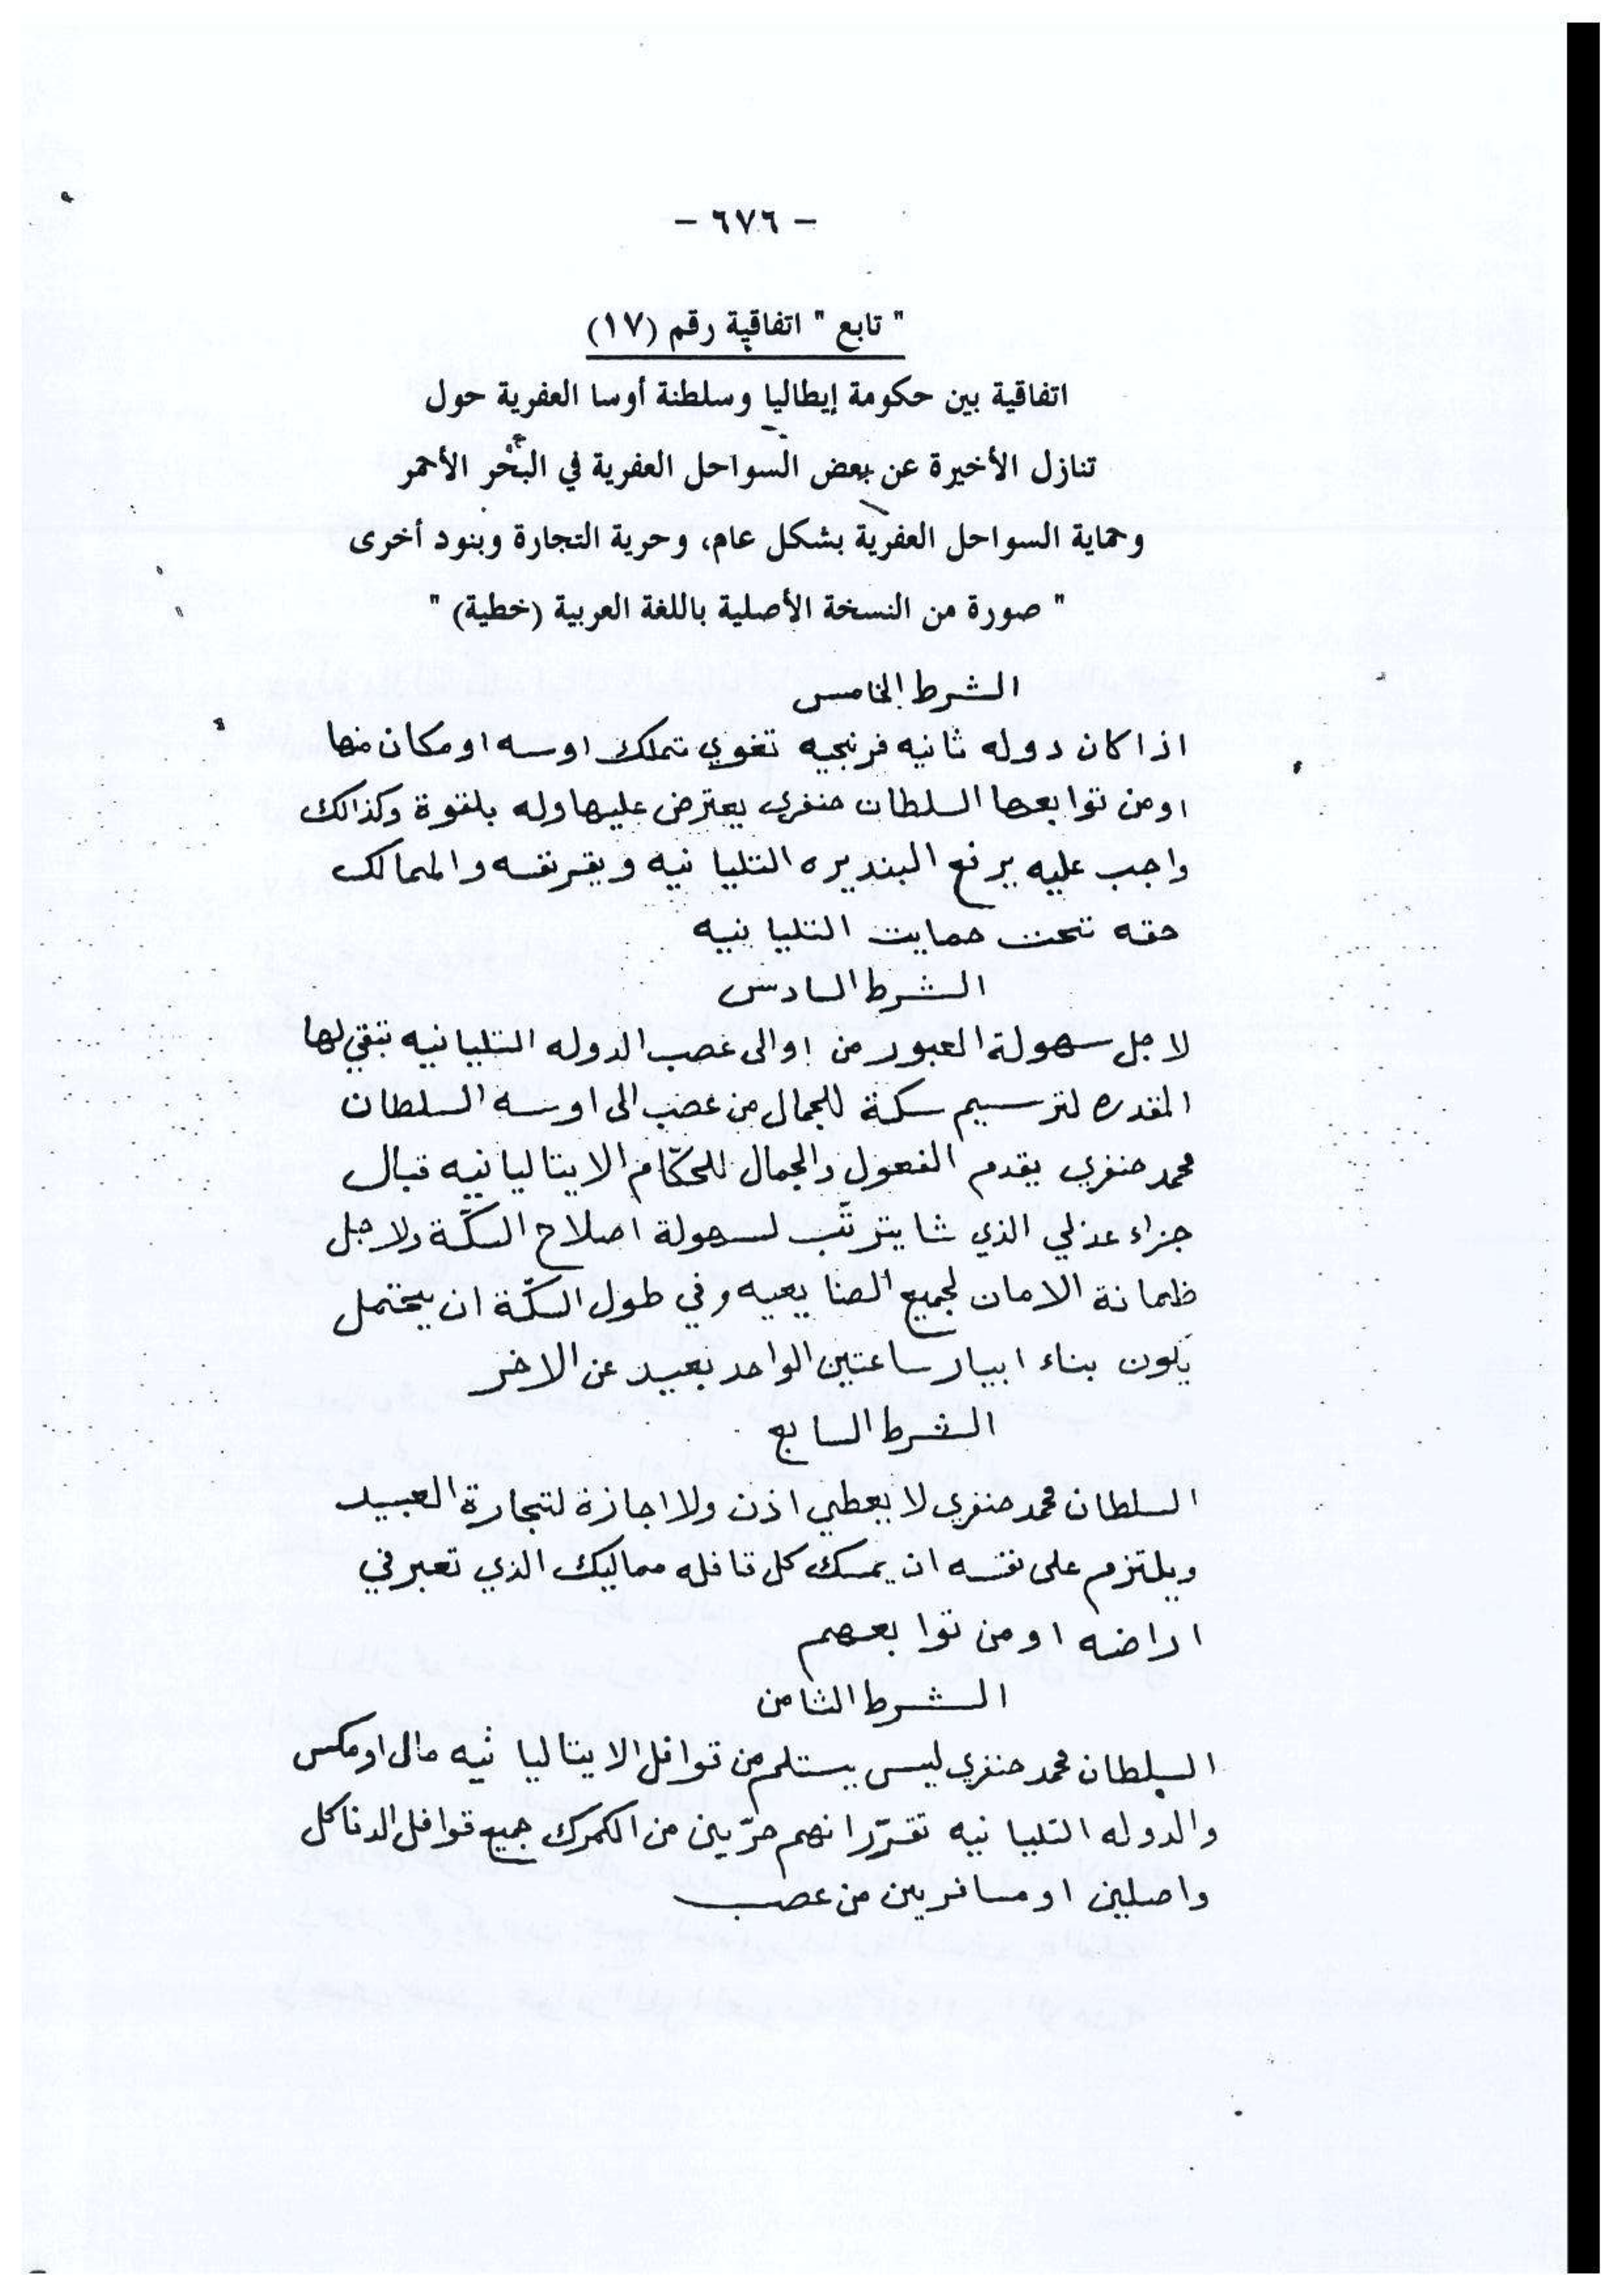 - ٦٧٦ -
" تابع " اتفاقية رقم (١٧)
اتفاقية بين حكومة إيطاليا وسلطنة أوسا العفرية حول
تنازل الأخيرة عن بعض السواحل العفرية في البحر الأحمر
وحماية السواحل العفرية بشكل عام، وحرية التجارة وبنود أخرى
" صورة من النسخة الأصلية باللغة العربية (خطية) "
الشرط الخامس
اذا كان دوله ثانيه فرنجيه تغوي تملك اوسه او مكان منها
او من توابعها السلطان حنفري يعترض عليها وله بلقوة وكذالك
واجب عليه يرفع البنديره التليانيه ويقر نفسه والممالك
حقه تحت حمايت التليانيه
الشرط السادس
لاجل سهولة العبور من اوالى عصب الدوله التليانيه تبقي لها
المقدره لترسيم سكة للجمال من عصب الى اوسه السلطان
محمد حنفري يقدم الفعول والجمال للحكّام الايتاليانيه قبال
جزاء عدلي الذي شا يترتّب لسهولة اصلاح السكّة ولاجل
ظمانة الامان لجميع الصنايعيه وفي طول السكّة ان يحتمل
يكون بناء ابيار ساعتين الواحد بعيد عن الاخر
الشرط السابع
السلطان محمد حنفري لا يعطي اذن ولا اجازة لتجارة العبيد
ويلتزم على نفسه ان يمسك كل قافله مماليك الذي تعبر في
اراضه او من توابعهم
الشرط الثامن
السلطان محمد حنفري ليس يستلم من قوافل الايتاليانيه مال او مكس
والدوله التليانيه تقرّر انهم حرّيين من الكمرك جميع قوافل الدناكل
واصلين او مسافريين من عصب